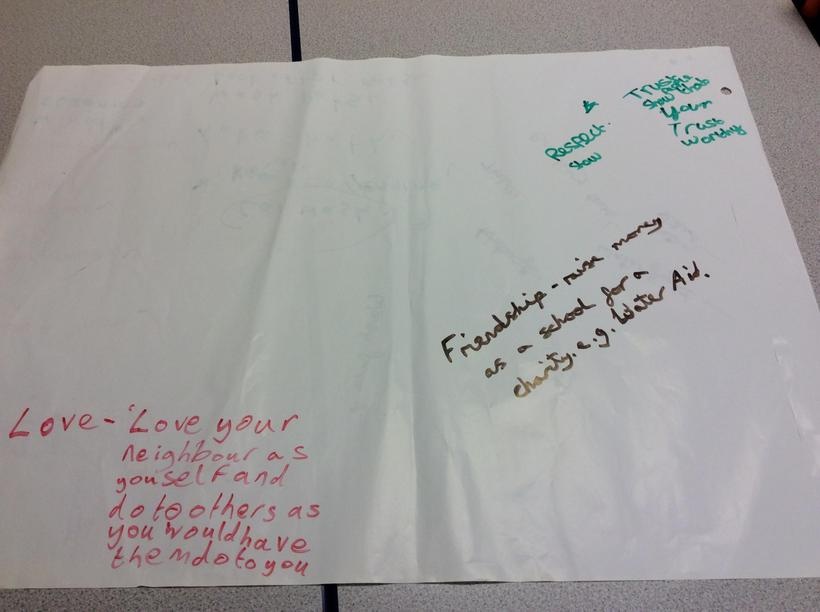 Trust
show that
your
Trust
worthy
Respect.
show
Friendship - raise money
as a school for a
charity. e.g. Water Aid.
Love - 'Love your
neighbour as
youself and
do to others as
you would have
them do to you